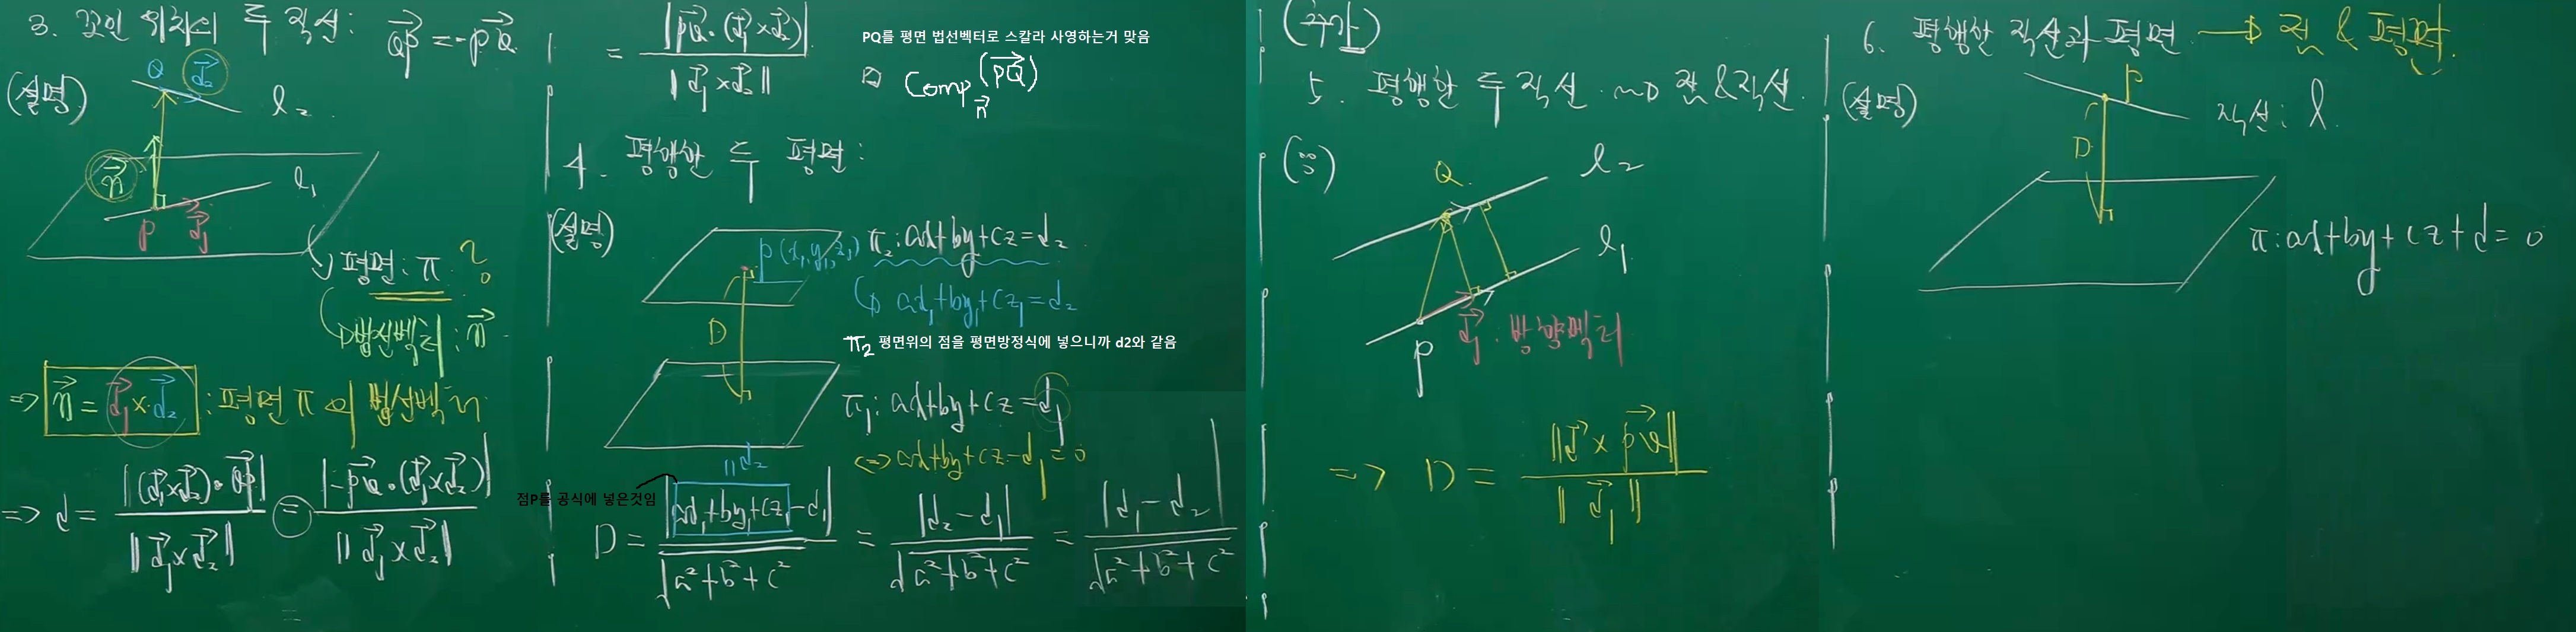 3. 꼬인 위치의 두 직선: QP = -PQ
(설명)
Q d₂
l₂
n
l₁
P d₁
평면: π ?
법선벡터: n
=> n = d₁ × d₂ : 평면 π의 법선벡터
=> d = |(d₁×d₂)·QP| / ‖d₁×d₂‖ = |-PQ·(d₁×d₂)| / ‖d₁×d₂‖
= |PQ·(d₁×d₂)| / ‖d₁×d₂‖
PQ를 평면 법선벡터로 스칼라 사영하는거 맞음
Comp n (PQ)
4. 평행한 두 평면:
(설명)
P(x₁, y₁, z₁)
π₂: ax+by+cz=d₂
ax₁+by₁+cz₁=d₂
D
π₂ 평면위의 점을 평면방정식에 넣으니까 d2와 같음
π₁: ax+by+cz=d₁
<=> ax+by+cz-d₁=0
= d₂
점P를 공식에 넣은것임
D = |ax₁+by₁+cz₁-d₁| / √a²+b²+c² = |d₂-d₁| / √a²+b²+c² = |d₁-d₂| / √a²+b²+c²
(추가)
5. 평행한 두 직선 ~> 점&직선.
Q
l₂
l₁
P
d₁: 방향벡터
=> D = ‖d × PQ‖ / ‖d₁‖
6. 평행한 직선과 평면 → 점 & 평면.
(설명)
P
직선: l
D
π: ax+by+cz+d=0